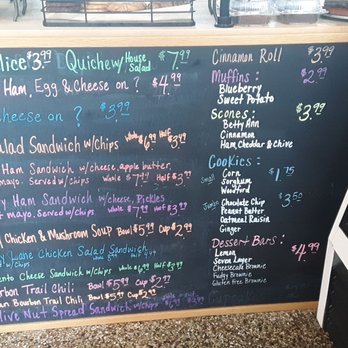 lice $3.99 [Quiche w/ House Salad $7.99
Ham, Egg & Cheese on ? $4.99
cheese on ? $3.99
alad Sandwich w/chips whole $6.99 half $3.99
Ham Sandwich w/cheese, apple butter,
mayo. Served w/chips whole $7.99 Half $3.99
y Ham Sandwich w/cheese, Pickles
mayo. Served w/chips whole $7.99 Half $3.99
Chicken & Mushroom Soup Bowl $5.99 Cup $2.99
y Lane Chicken Salad Sandwich
w/chips
ento Cheese Sandwich w/chips
rbon Trail Chili: Bowl $5.99 Cup $2.99
an Bourbon Trail Chili Bowl Cup
live Nut Spread Sandwich w/chips
Cinnamon Roll $3.99
Muffins: $2.99
Blueberry
Sweet Potato
Scones: $3.99
Betty Ann
Cinnamon
Ham, Cheddar & Chive
Cookies:
Small Corn $1.75
Sorghum
Woodford
Jumbo Chocolate Chip $3.50
Peanut Butter
Oatmeal Raisin
Ginger
Dessert Bars: $4.99
Lemon
Seven Layer
Cheesecake Brownie
Fudgy Brownie
Gluten Free Brownie